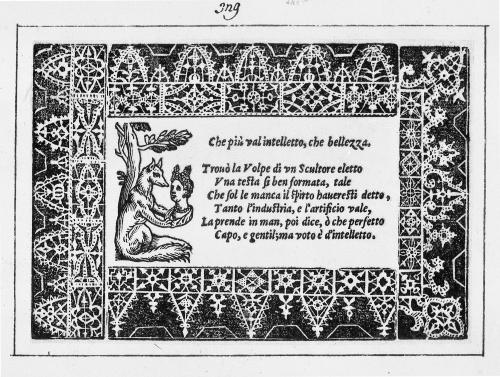 3ng
Che più val intelletto, che bellezza.
Trouò la Volpe di vn Scultore eletto
Vna testa sì ben formata, tale
Che sol le manca il spirto haueresti detto,
Tanto l'industria, e l'artificio vale,
La prende in man, poi dice, ò che perfetto
Capo, e gentil; ma voto è d'intelletto.